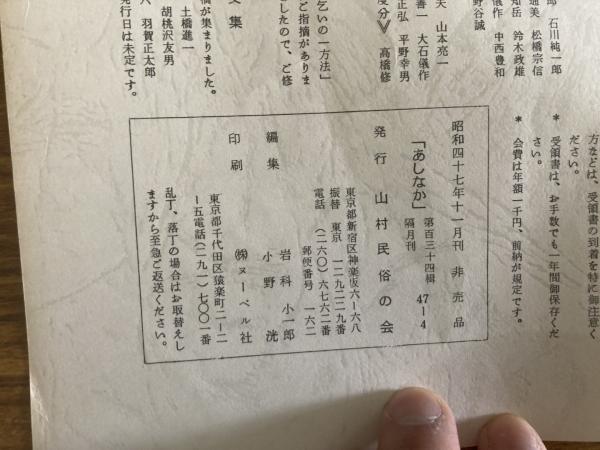 方などは、受領書の到着を特に御注意く
ださい。
* 受領書は、お手数でも一年間御保存くだ
さい。
* 会費は年額一千円、前納が規定です。
郎 石川純一郎
通美 松橋宗信
知岳 鈴木政雄
儀作 中西豊和
野谷誠
夫 山本亮一
善一 大石儀作
正弘 平野幸男
度分》 高橋修
乞いの一方法」
ご指摘がありま
したので、ご修
文集
稿が集まりました。
土橋進一
胡桃沢友男
六 羽賀正太郎
発行日は未定です。
昭和四十七年十一月刊 非売品
「あしなか」 第百三十四輯 47-4
隔月刊
発行 山村民俗の会
東京都新宿区神楽坂六-六八
振替 東京 一二九二二九番
電話 (二六〇)六七六二番
郵便番号 一六二
編集 岩科小一郎
小野 洸
印刷 ㈱ヌーベル社
東京都千代田区猿楽町二-二
-五電話(二九一)七〇〇一番
乱丁、落丁の場合はお取替えし
ますから至急ご返送ください。